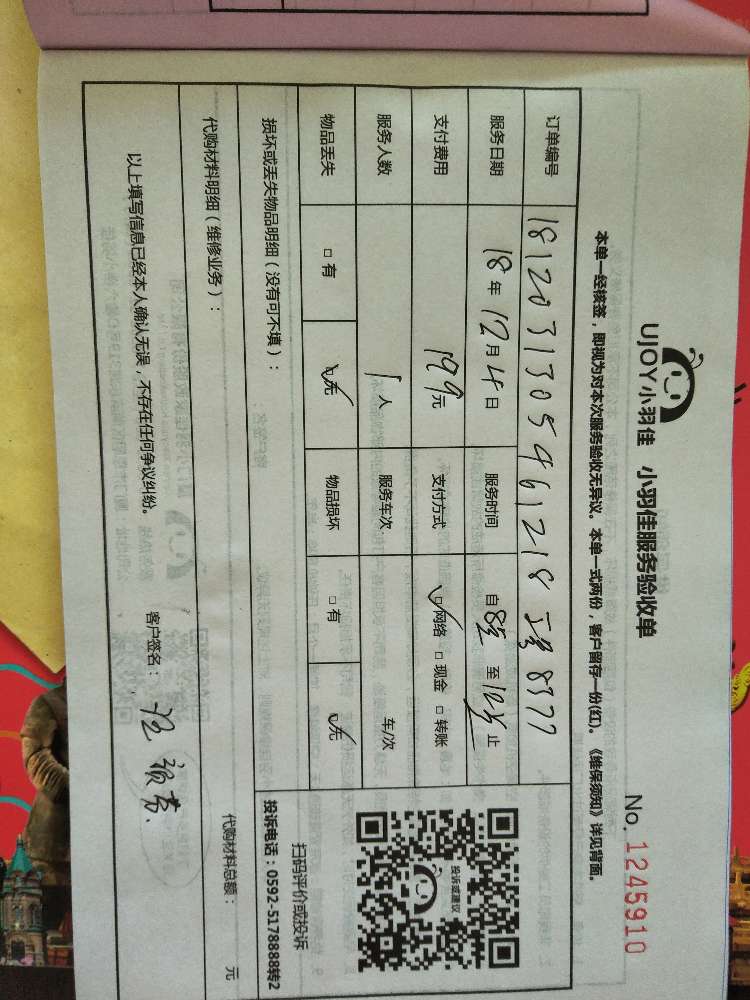 UJOY小羽佳 小羽佳服务验收单
No. 1245910
本单一经核签，即视为对本次服务验收无异议。本单一式两份，客户留存一份(红)。《维保须知》详见背面。
订单编号 1812031305461218 工号8577
服务日期 18年12月4日 服务时间 自8点至12点止
支付费用 199元 支付方式 网络 □现金 □转账
服务人数 1人 服务车次 车/次
物品丢失 □有 无 物品损坏 □有 无
损坏或丢失物品明细（没有可不填）：
投诉或建议
扫码评价或投诉
投诉电话：0592-5178888转2
代购材料明细（维修业务）：
代购材料总额： 元
以上填写信息已经本人确认无误，不存在任何争议纠纷。
客户签名：